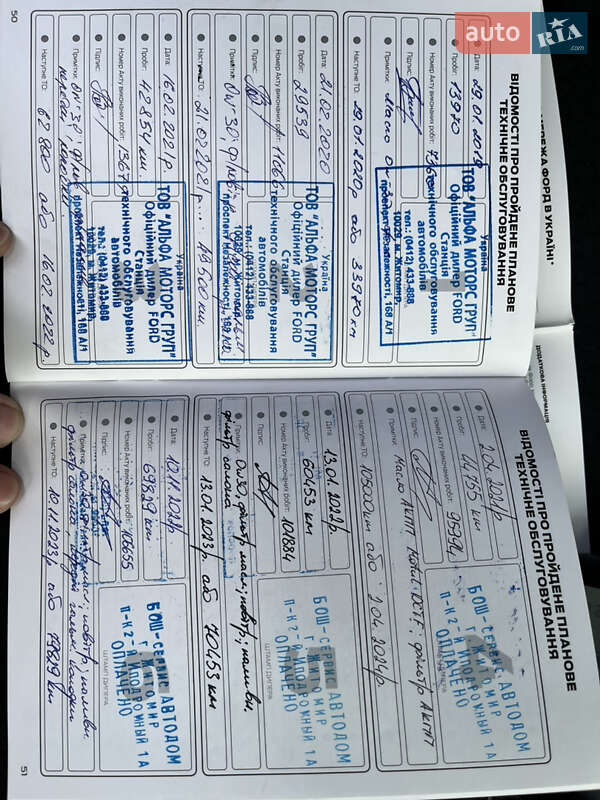 auto RIA.com
МЕРЕЖА ФОРД В УКРАЇНІ
ДОДАТКОВА ІНФОРМАЦІЯ
ВІДОМОСТІ ПРО ПРОЙДЕНЕ ПЛАНОВЕ
ТЕХНІЧНЕ ОБСЛУГОВУВАННЯ
Дата: 29.01.2019
Пробіг: 13970
Номер Акту виконаних робіт:
Підпис:
Примітки: Масло
Наступне ТО: 29.01.2020р або 33970 км
Україна
ТОВ "АЛЬФА МОТОРС ГРУП"
Офіційний дилер FORD
Станція
технічного обслуговування
автомобілів
тел.: (0412) 433-888
10029, м. Житомир,
проспект Незалежності, 168 А/1
Дата: 21.02.2020
Пробіг: 29539
Номер Акту виконаних робіт:
Підпис:
Примітки: 0W30, фільтр
Наступне ТО: 21.02.2021р. 49500 км.
Україна
ТОВ "АЛЬФА МОТОРС ГРУП"
Офіційний дилер FORD
Станція
технічного обслуговування
автомобілів
тел.: (0412) 433-888
Дата: 16.02.2021р.
Пробіг: 42854 км.
Номер Акту виконаних робіт:
Підпис:
Примітки: 0W-30
Наступне ТО: 62800 або 16.02.2022р.
Україна
ТОВ "АЛЬФА МОТОРС ГРУП"
Офіційний дилер FORD
Станція
технічного обслуговування
автомобілів
тел.: (0412) 433-888
10029, м. Житомир,
проспект Незалежності, 168 А/1
50
ВІДОМОСТІ ПРО ПРОЙДЕНЕ ПЛАНОВЕ
ТЕХНІЧНЕ ОБСЛУГОВУВАННЯ
Дата: 2.04.2021р
Пробіг: 44755 км
Номер Акту виконаних робіт: 95994
Підпис:
Примітки: Масло АКПП Motul DCTF; фільтр АКПП
Наступне ТО: 105000 км або 2.04.2024р.
БОШ-СЕРВИС АВТОДОМ
г. ЖИТОМИР
п-к 2-й Ипподромный 1А
ОПЛАЧЕНО
Дата: 12.01.2022р.
Пробіг: 60453 км
Номер Акту виконаних робіт: 101884
Підпис:
Примітки: 0w30, фільтр масл; повітр; паливн.
фільтр салона
Наступне ТО: 12.01.2023р або 70453 км
ШТАМП ДИЛЕРА
БОШ-СЕРВИС АВТОДОМ
г. ЖИТОМИР
п-к 2-й Ипподромный 1А
ОПЛАЧЕНО
Дата: 10.11.2022р
Пробіг: 69629 км.
Номер Акту виконаних робіт: 106655
Підпис:
Примітки: повітр; паливн.
фільтр салона
Наступне ТО: 10.11.2023р або 79629 км
ШТАМП ДИЛЕРА
БОШ-СЕРВИС АВТОДОМ
г. ЖИТОМИР
п-к 2-й Ипподромный 1А
ОПЛАЧЕНО
51